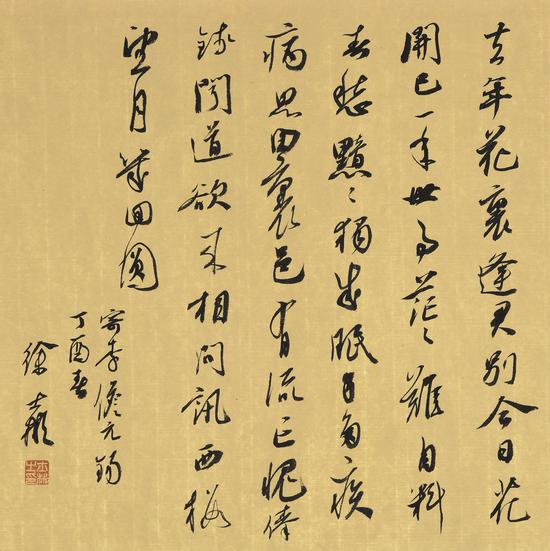 去年花裏逢君別今日花
開已一年世事茫〻難自料
春愁黯〻獨成眠身多疾
病思田裏邑有流亡愧俸
錢聞道欲來相問訊西樓
望月幾回圓
寄李儋元錫
丁酉春
徐